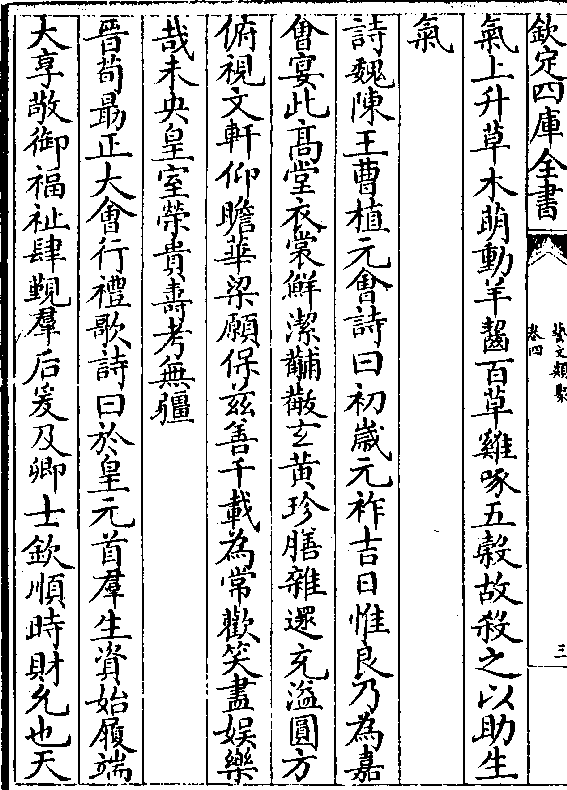 欽定四庫全書
藝文類聚
卷四
三
氣上升草木萌動羊齧百草雞啄五穀故殺之以助生
氣
詩魏陳王曹植元會詩曰初歲元祚吉日惟良乃為嘉
會宴此髙堂衣裳鮮潔黼黻玄黄珍膳雜遝充溢圓方
俯視文軒仰瞻華梁願保兹善千載為常歡笑盡娱樂
哉未央皇室榮貴壽考無疆
晉荀勗正大會行禮歌詩曰於皇元首羣生資始履端
大享敬御福祉肆覲羣后爰及卿士欽順時財允也天